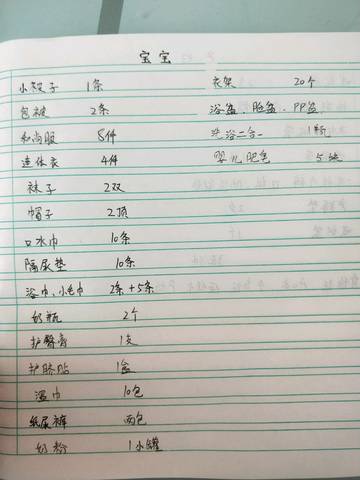 宝宝
小被子 1条
包被 2条
和尚服 5件
连体衣 4件
袜子 2双
帽子 2顶
口水巾 10条
隔尿垫 10条
浴巾、小毛巾 2条+5条
奶瓶 2个
护臀膏 1支
护脐贴 1盒
湿巾 10包
纸尿裤 两包
奶粉 1小罐
衣架 20个
浴盆、脸盆、PP盆
洗浴二合一 1瓶
婴儿肥皂 5块